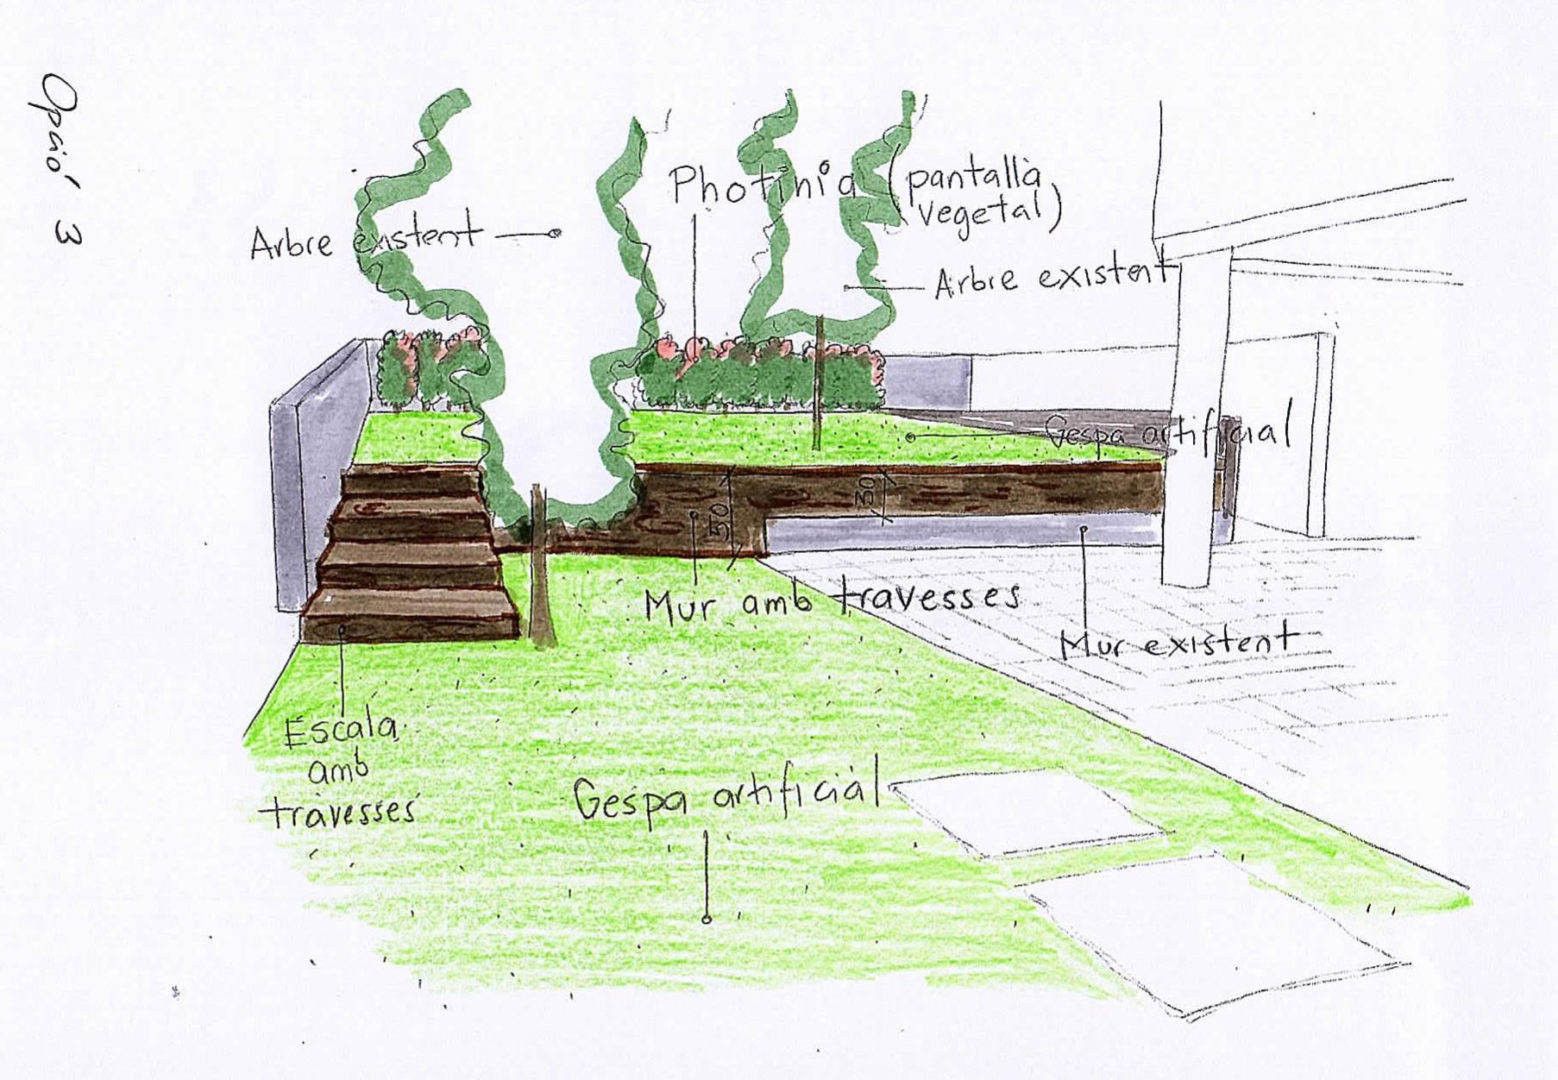 Opció 3
Photinia (pantalla
vegetal)
Arbre existent
Arbre existent
Gespa artificial
50
30
Mur amb travesses
Mur existent
Escala
amb
travesses
Gespa artificial